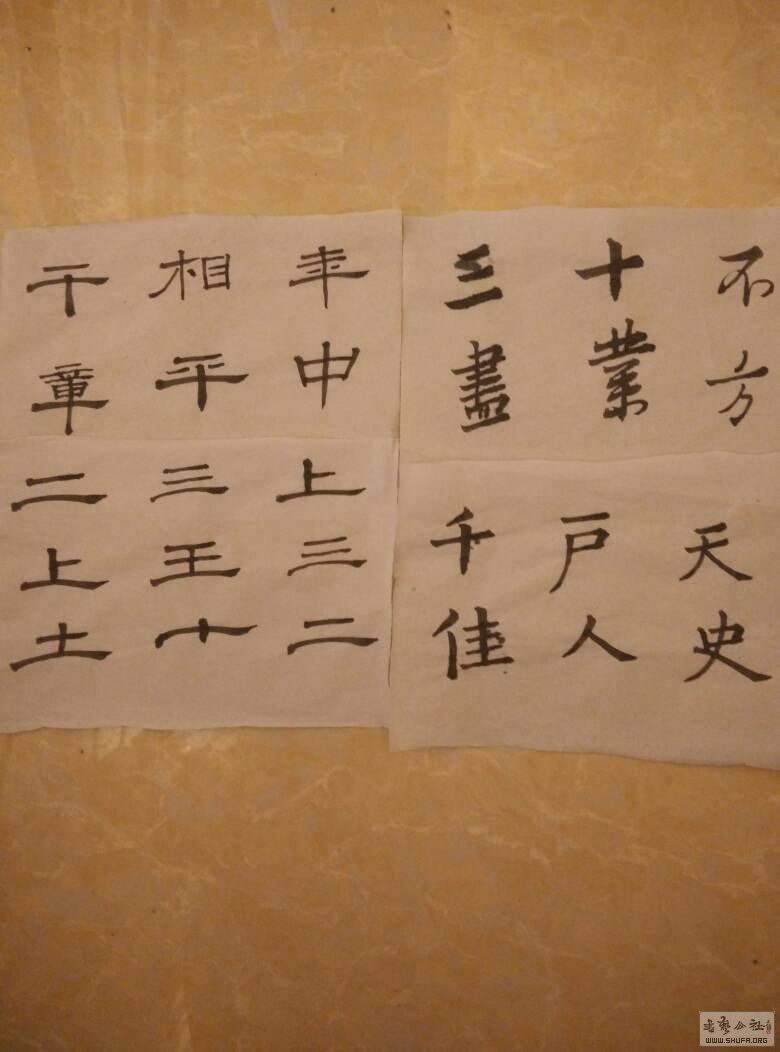 干 相 年
章 平 中
三 十 不
盡 業 方
二 三 上
上 王 三
土 十 二
千 戸 天
佳 人 史
书艺公社
WWW.SHUFA.ORG